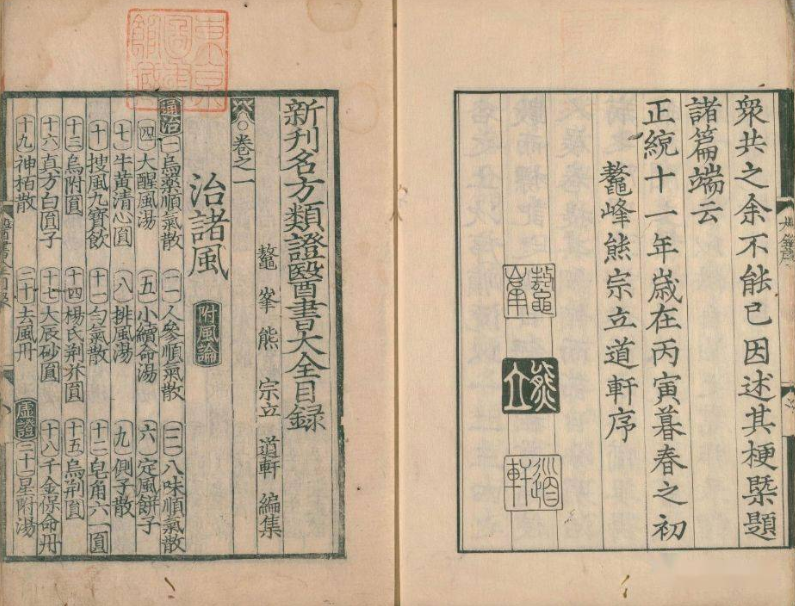 衆共之余不能已因述其梗槩題
諸篇端云
正統十一年歲在丙寅暮春之初
鼇峰熊宗立道軒序
鼇峯
熊立
道軒
新刊名方類證醫書大全目録
鼇峯熊 宗立 道軒 編集
卷之一
治諸風 附風論
通治 一 烏藥順氣散 二 人參順氣散 三 八味順氣散
四 大醒風湯 五 小續命湯 六 定風餅子
七 牛黃清心圓 八 排風湯 九 側子散
十 搜風九寶飲 十一 匀氣散 十二 皂角六一圓
十三 烏附圓 十四 楊氏荆芥圓 十五 烏荆圓
十六 直方白圓子 十七 大辰砂圓 十八 千金保命丹
十九 神栢散 二十 去風丹 虛證 二十一 星附湯
東京圖書館藏